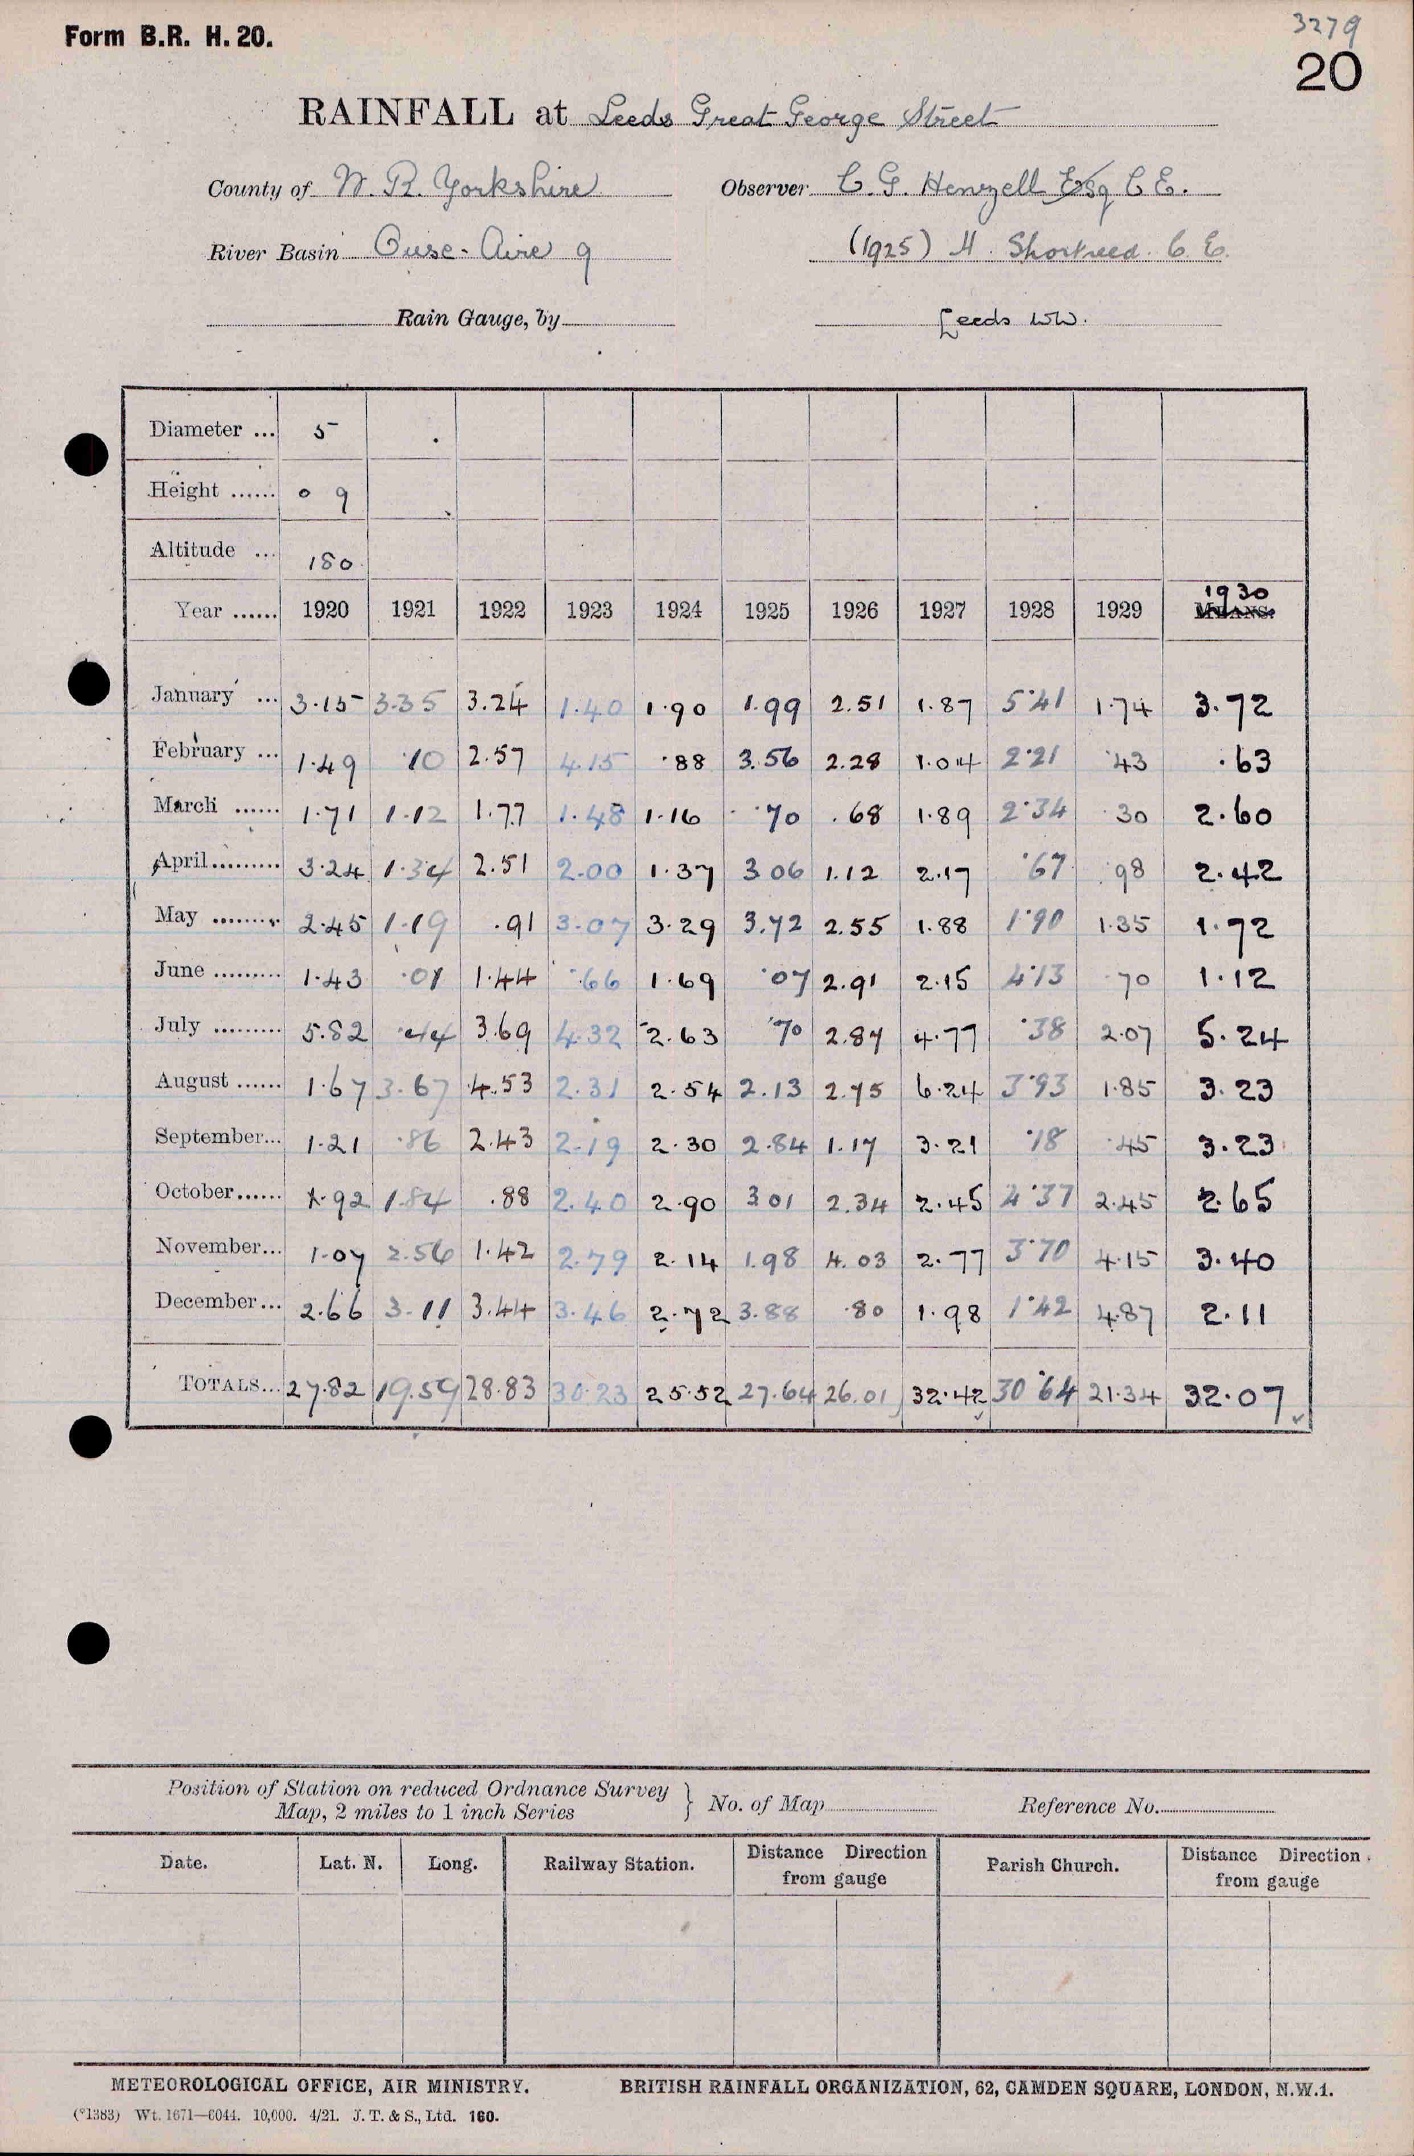 Form B.R. H. 20.
3279
20
RAINFALL at Leeds Great George Street
County of W. R. Yorkshire Observer C. G. Henzell Esq C E.
River Basin Ouse-Aire 9 (1925) H. Shortreed. C E.
Rain Gauge, by Leeds WW.
Diameter ... 5
Height ...... 0 9
Altitude ... 180
Year ...... 1920 1921 1922 1923 1924 1925 1926 1927 1928 1929 1930 MEANS.
January ... 3.15 3.35 3.24 1.40 1.90 1.99 2.51 1.87 5.41 1.74 3.72
February ... 1.49 .10 2.57 4.15 .88 3.56 2.28 1.04 2.21 .43 .63
March ...... 1.71 1.12 1.77 1.48 1.16 .70 .68 1.89 2.34 .30 2.60
April......... 3.24 1.34 2.51 2.00 1.37 3 06 1.12 2.17 .67 .98 2.42
May ......... 2.45 1.19 .91 3.07 3.29 3.72 2.55 1.88 1.90 1.35 1.72
June ......... 1.43 .01 1.44 .66 1.69 .07 2.91 2.15 4.13 .70 1.12
July ......... 5.82 .44 3.69 4.32 2.63 .70 2.87 4.77 .38 2.07 5.24
August ...... 1.67 3.67 4.53 2.31 2.54 2.13 2.75 6.24 3.93 1.85 3.23
September... 1.21 .86 2.43 2.19 2.30 2.84 1.17 3.21 .18 .45 3.23
October...... 1.92 1.84 .88 2.40 2.90 3 01 2.34 2.45 4.37 2.45 2.65
November... 1.07 2.56 1.42 2.79 2.14 1.98 4.03 2.77 3.70 4.15 3.40
December... 2.66 3.11 3.44 3.46 2.72 3.88 .80 1.98 1.42 4.87 2.11
TOTALS... 27.82 19.59 28.83 30.23 25.52 27.64 26.01 32.42 30.64 21.34 32.07
Position of Station on reduced Ordnance Survey
Map, 2 miles to 1 inch Series
No. of Map Reference No.
Date. Lat. N. Long. Railway Station. Distance Direction from gauge Parish Church. Distance Direction from gauge
METEOROLOGICAL OFFICE, AIR MINISTRY. BRITISH RAINFALL ORGANIZATION, 62, CAMDEN SQUARE, LONDON, N.W.1.
(*1383) Wt. 1671—6044. 10,000. 4/21. J. T. & S., Ltd. 160.